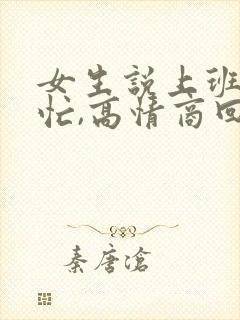 女生説上班
忙,高情商回
秦唐滄